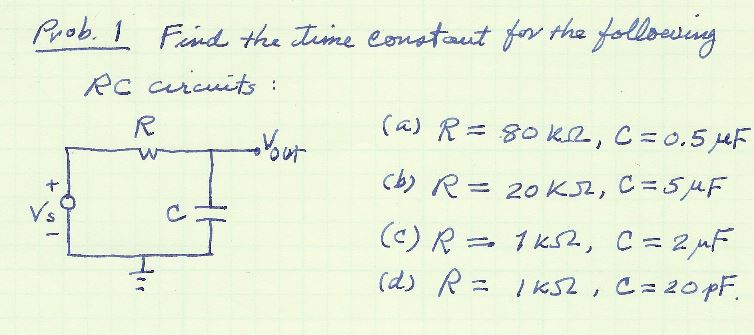 Prob. 1 Find the time constant for the following
RC circuits:
R
Vout
+
Vs
-
C
(a) R = 80 kΩ, C = 0.5 μF
(b) R = 20 KΩ, C = 5 μF
(c) R = 1 kΩ, C = 2 μF
(d) R = 1 KΩ, C = 20 pF.